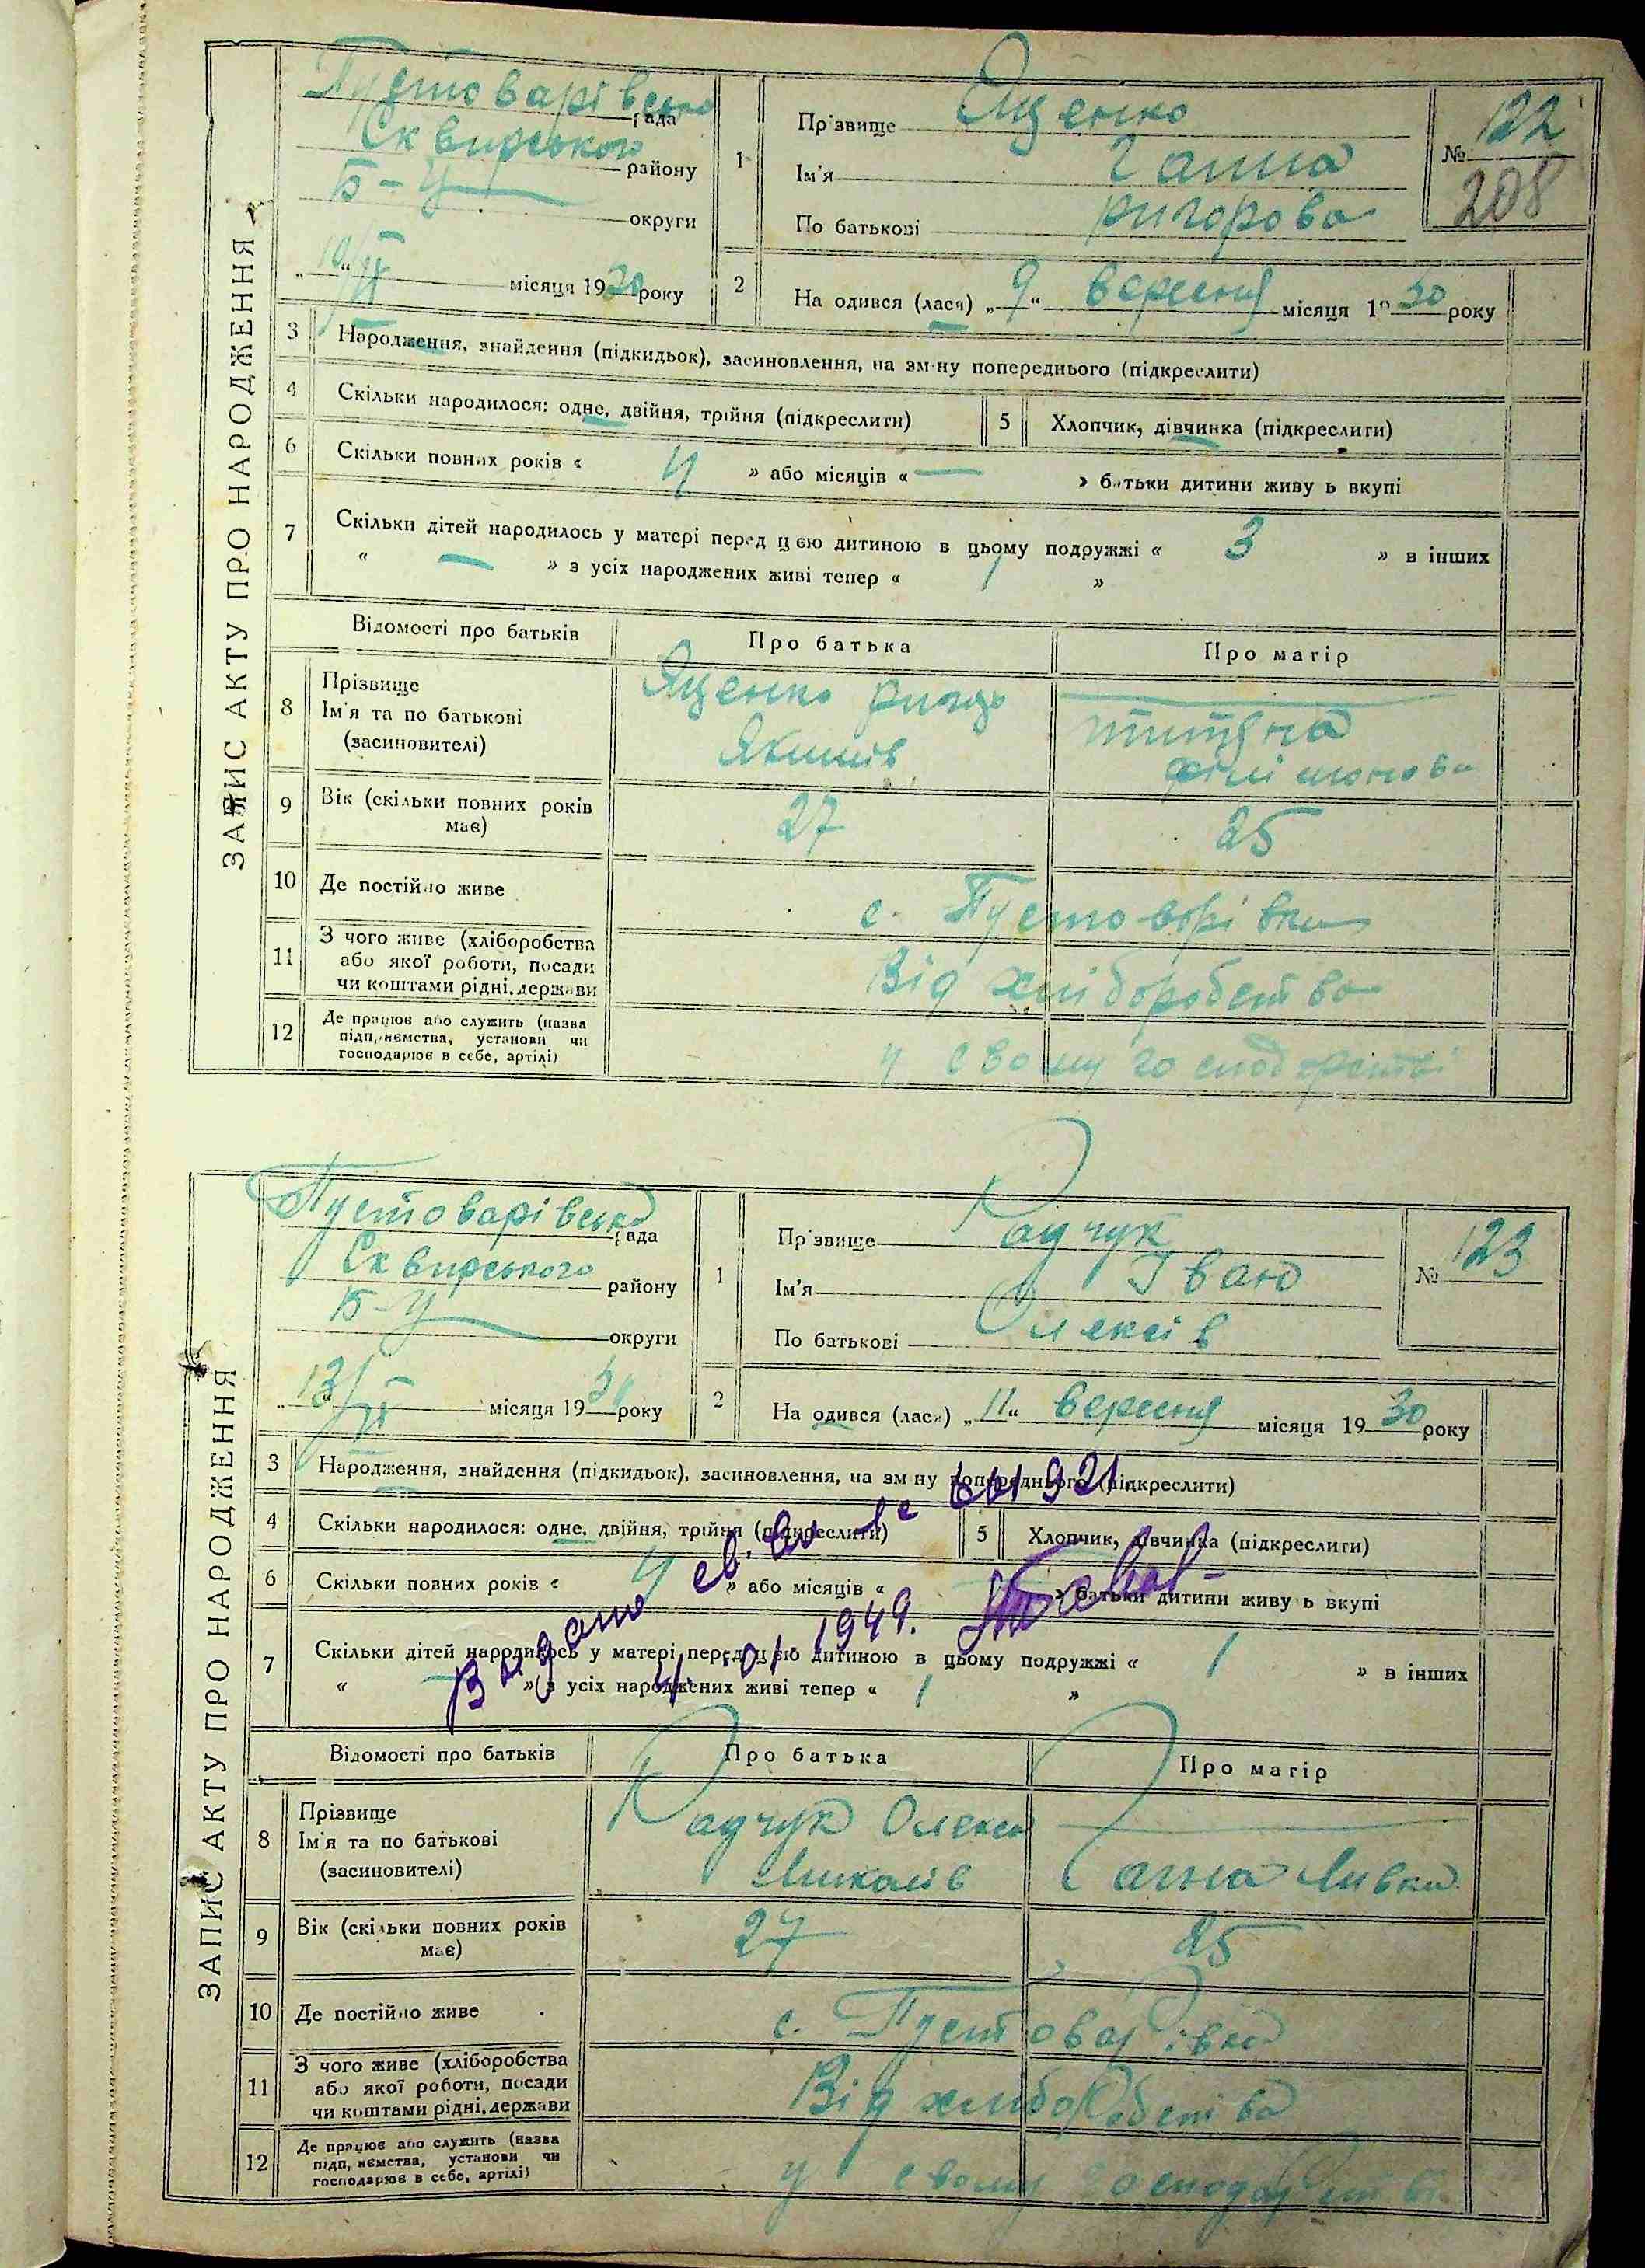 ЗАПИС АКТУ ПРО НАРОДЖЕННЯ
Пустоварівська рада
Сквирського району
Б-Ц округи
„10“ IX місяця 1930 року
1 Прізвище Ященко
Ім'я Ганна
По батькові Ригорова
№ 122
208
2 На одився (лася) „9“ вересня місяця 1930 року
3 Народження, знайдення (підкидьок), засиновлення, на зміну попереднього (підкреслити)
4 Скільки народилося: одне, двійня, трійня (підкреслити)
5 Хлопчик, дівчинка (підкреслити)
6 Скільки повних років « 4 » або місяців « — » батьки дитини живуть вкупі
7 Скільки дітей народилось у матері перед цією дитиною в цьому подружжі « 3 » в інших
« — » з усіх народжених живі тепер « 1 »
Відомості про батьків Про батька Про матір
8 Прізвище
Ім'я та по батькові
(засиновителі)
Ященко Ригор
Якимів
—
Титяна
Филимонова
9 Вік (скільки повних років
має)
27 25
10 Де постійно живе с. Пустоварівка
11 З чого живе (хліборобства
або якої роботи, посади
чи коштами рідні, держави
Від хліборобства
12 Де працює або служить (назва
підприємства, установи чи
господарює в себе, артілі)
у свому господарстві
ЗАПИС АКТУ ПРО НАРОДЖЕННЯ
Пустоварівська рада
Сквирського району
Б-Ц округи
„13“ IX місяця 1930 року
1 Прізвище Радчук
Ім'я Іван
По батькові Олексів
№ 123
2 На одився (лася) „11“ вересня місяця 1930 року
3 Народження, знайдення (підкидьок), засиновлення, на зміну попереднього (підкреслити)
4 Скільки народилося: одне, двійня, трійня (підкреслити)
5 Хлопчик, дівчинка (підкреслити)
6 Скільки повних років « 4 » або місяців « — » батьки дитини живуть вкупі
7 Скільки дітей народилось у матері перед цією дитиною в цьому подружжі « 1 » в інших
« — » з усіх народжених живі тепер « 1 »
Видано св.
4. 01 1949.
Відомості про батьків Про батька Про матір
8 Прізвище
Ім'я та по батькові
(засиновителі)
Радчук Олекса
Миколів
—
Ганна
9 Вік (скільки повних років
має)
27 25
10 Де постійно живе с. Пустоварівка
11 З чого живе (хліборобства
або якої роботи, посади
чи коштами рідні, держави
Від хліборобства
12 Де працює або служить (назва
підприємства, установи чи
господарює в себе, артілі)
у свому господарстві